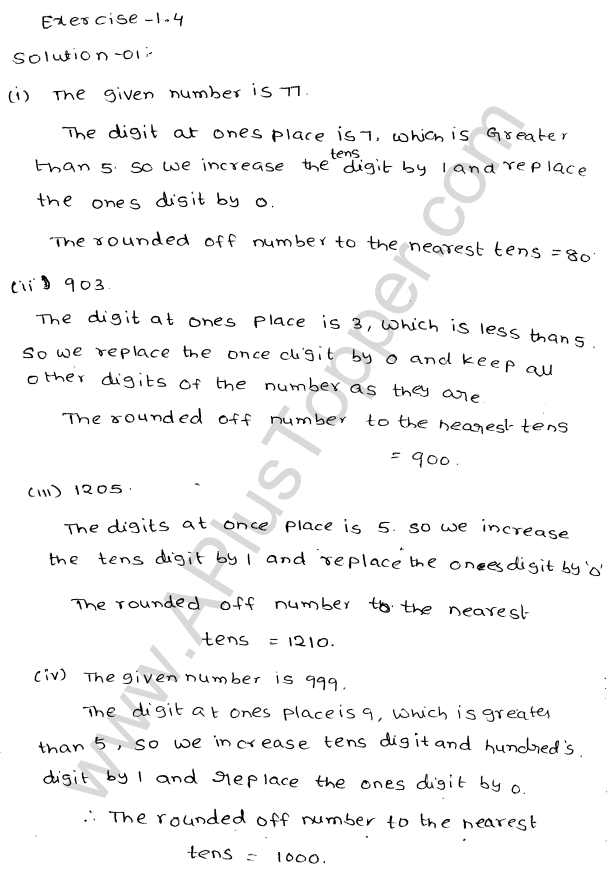 Exercise-1.4
Solution-01:-
(i) The given number is 77.
The digit at ones place is 7, which is Greater
than 5. so we increase the tens digit by 1 and replace
the ones digit by 0.
The rounded off number to the nearest tens = 80.
(ii) 903.
The digit at ones Place is 3, which is less than 5.
So we replace the once digit by 0 and keep all
other digits of the number as they are.
The rounded off number to the nearest tens
= 900.
(iii) 1205.
The digits at once place is 5. so we increase
the tens digit by 1 and replace the ones digit by '0'
The rounded off number to the nearest
tens = 1210.
(iv) The given number is 999.
The digit at ones place is 9, which is greater
than 5, so we increase tens digit and hundred's.
digit by 1 and replace the ones digit by 0.
∴ The rounded off number to the nearest
tens = 1000.
www.APlusTopper.com